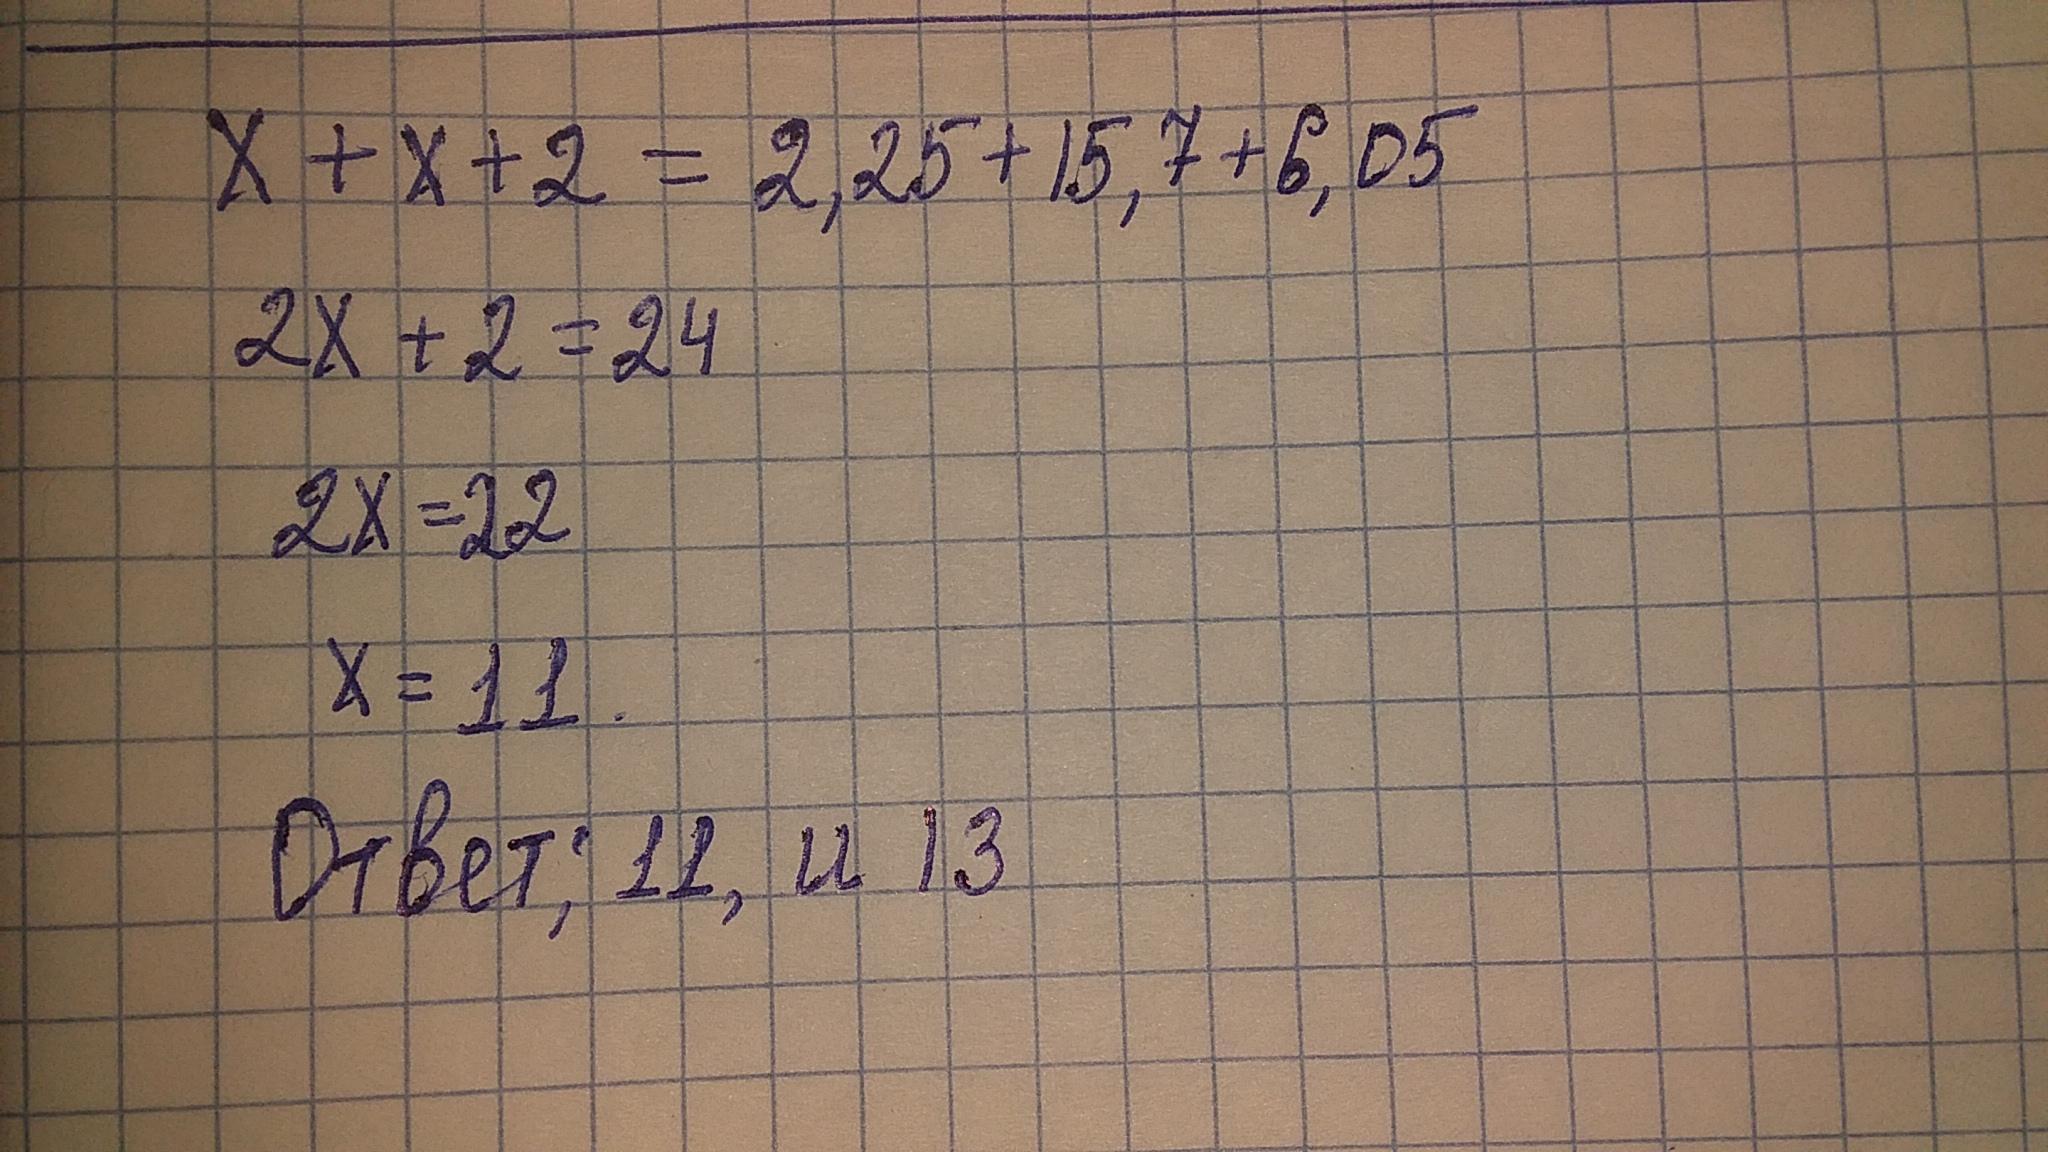 x + x + 2 = 2,25 + 15,7 + 6,05
2x + 2 = 24
2x = 22
x = 11.
Ответ; 11, и 13